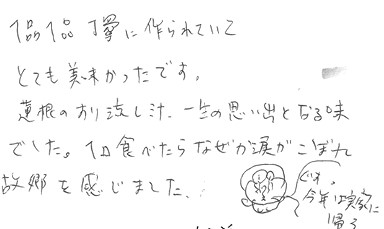 1品1品 丁寧に作られていて
とても美味かったです。
蓮根のすり流し汁、一生の思い出となる味
でした。1口食べたらなぜか涙がこぼれ
故郷を感じました。
今年は実家に
帰る